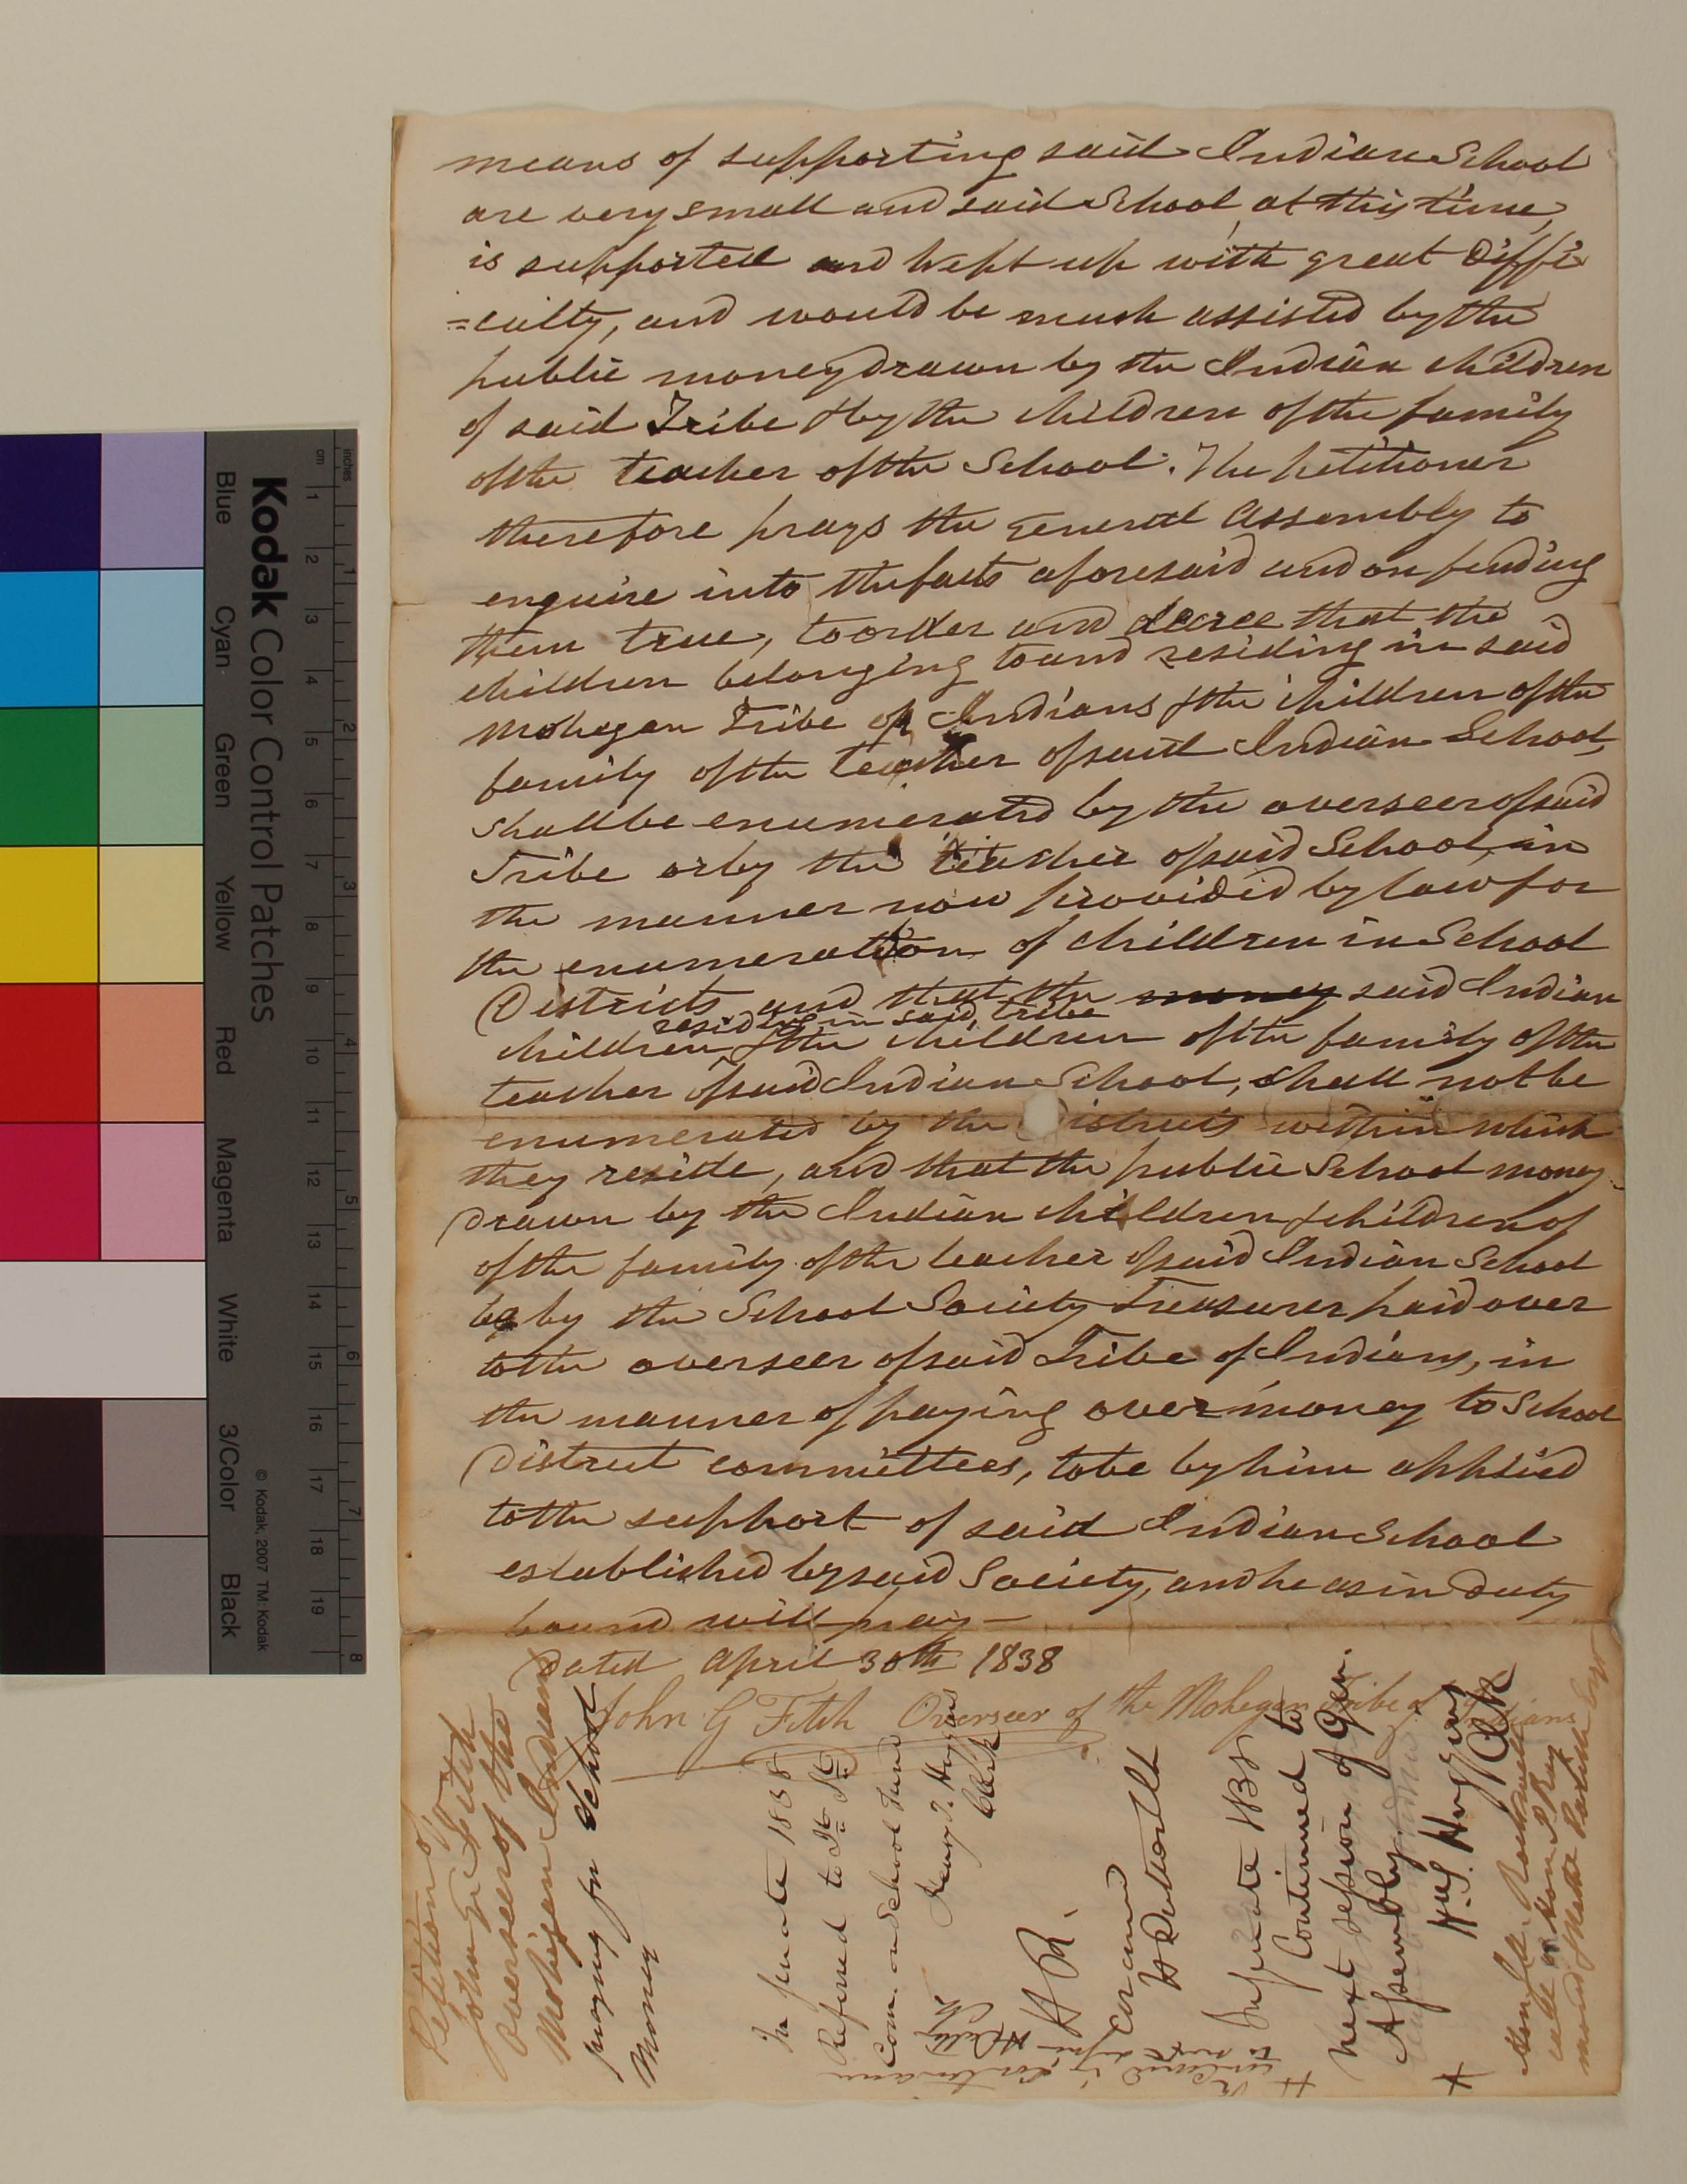 means of supporting said Indian School
are very small and said School at this time
is supported and kept up with great Diffi-
=culty, and would be much assisted by the
public money drawn by the Indian children
of said Tribe & by the children of the family
of the teacher of the School. The petitioner
therefore prays the General Assembly to
enquire into the facts aforesaid and on finding
them true, to order and decree that the
children belonging to and residing in said
Mohegan Tribe of Indians & the children of the
family of the teacher of said Indian School,
shall be enumerated by the overseer of said
Tribe or by the teacher of said School, in
the manner now provided by law for
the enumeration of children in School
Districts and that the money said Indian
residing in said tribe
children & the children of the family of the
teacher of said Indian School, shall not be
enumerated by the istricts within which
they reside, and that the public School money
drawn by the Indian children & children of
of the family of the teacher of said Indian School
be by the School Society Treasurer paid over
to the overseer of said Tribe of Indians, in
the manner of paying over money to School
District committees, to be by him applied
to the support of said Indian School
established by said Society, and he as in duty
bound will pray —
Dated April 30th 1838
John G Fitch Overseer of the Mohegan Tribe of Indians
Petition of
John G Fitch
Overseer of the
Mohegan Indians
praying for School
Money
In Senate 1838
Referred to Jt St
Com. on School Fund
Henry T. Huggins
Clerk
H R.
Concurred
In Senate 1838
Continued to
next session of Gen.
Assembly.
H. T. Huggins
Clk
Kodak Color Control Patches
Blue Cyan Green Yellow Red Magenta White 3/Color Black
© Kodak, 2007 TM: Kodak
inches 1 2 3 4 5 6 7 8
cm 1 2 3 4 5 6 7 8 9 10 11 12 13 14 15 16 17 18 19